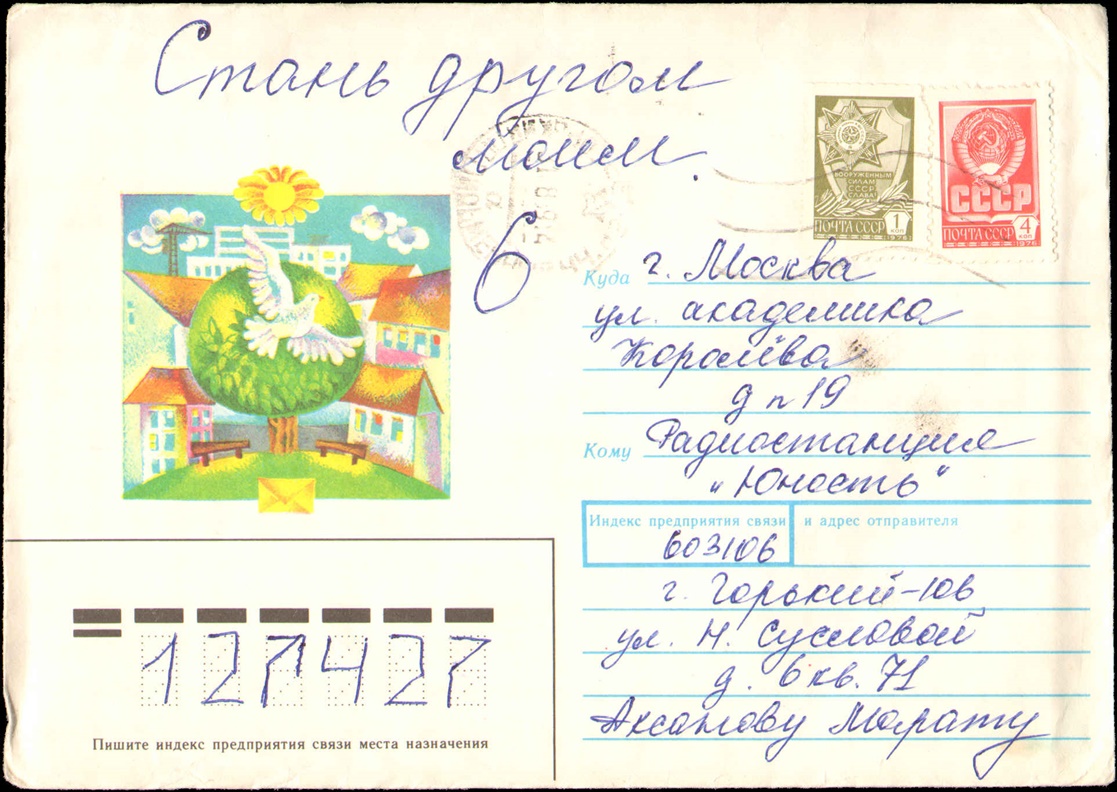 Стань другом
моим.
6
ВООРУЖЕННЫМ
СИЛАМ
СССР
СЛАВА!
1
коп
ПОЧТА СССР
1976
СССР
4
коп
ПОЧТА СССР
1976
Куда г. Москва
ул. академика
Королёва
д п 19
Кому Радиостанция
"Юность"
Индекс предприятия связи и адрес отправителя
603106
г. Горький-106
ул. Н. Сусловой
д. 6 кв. 71
Аксанову Марату
127427
Пишите индекс предприятия связи места назначения